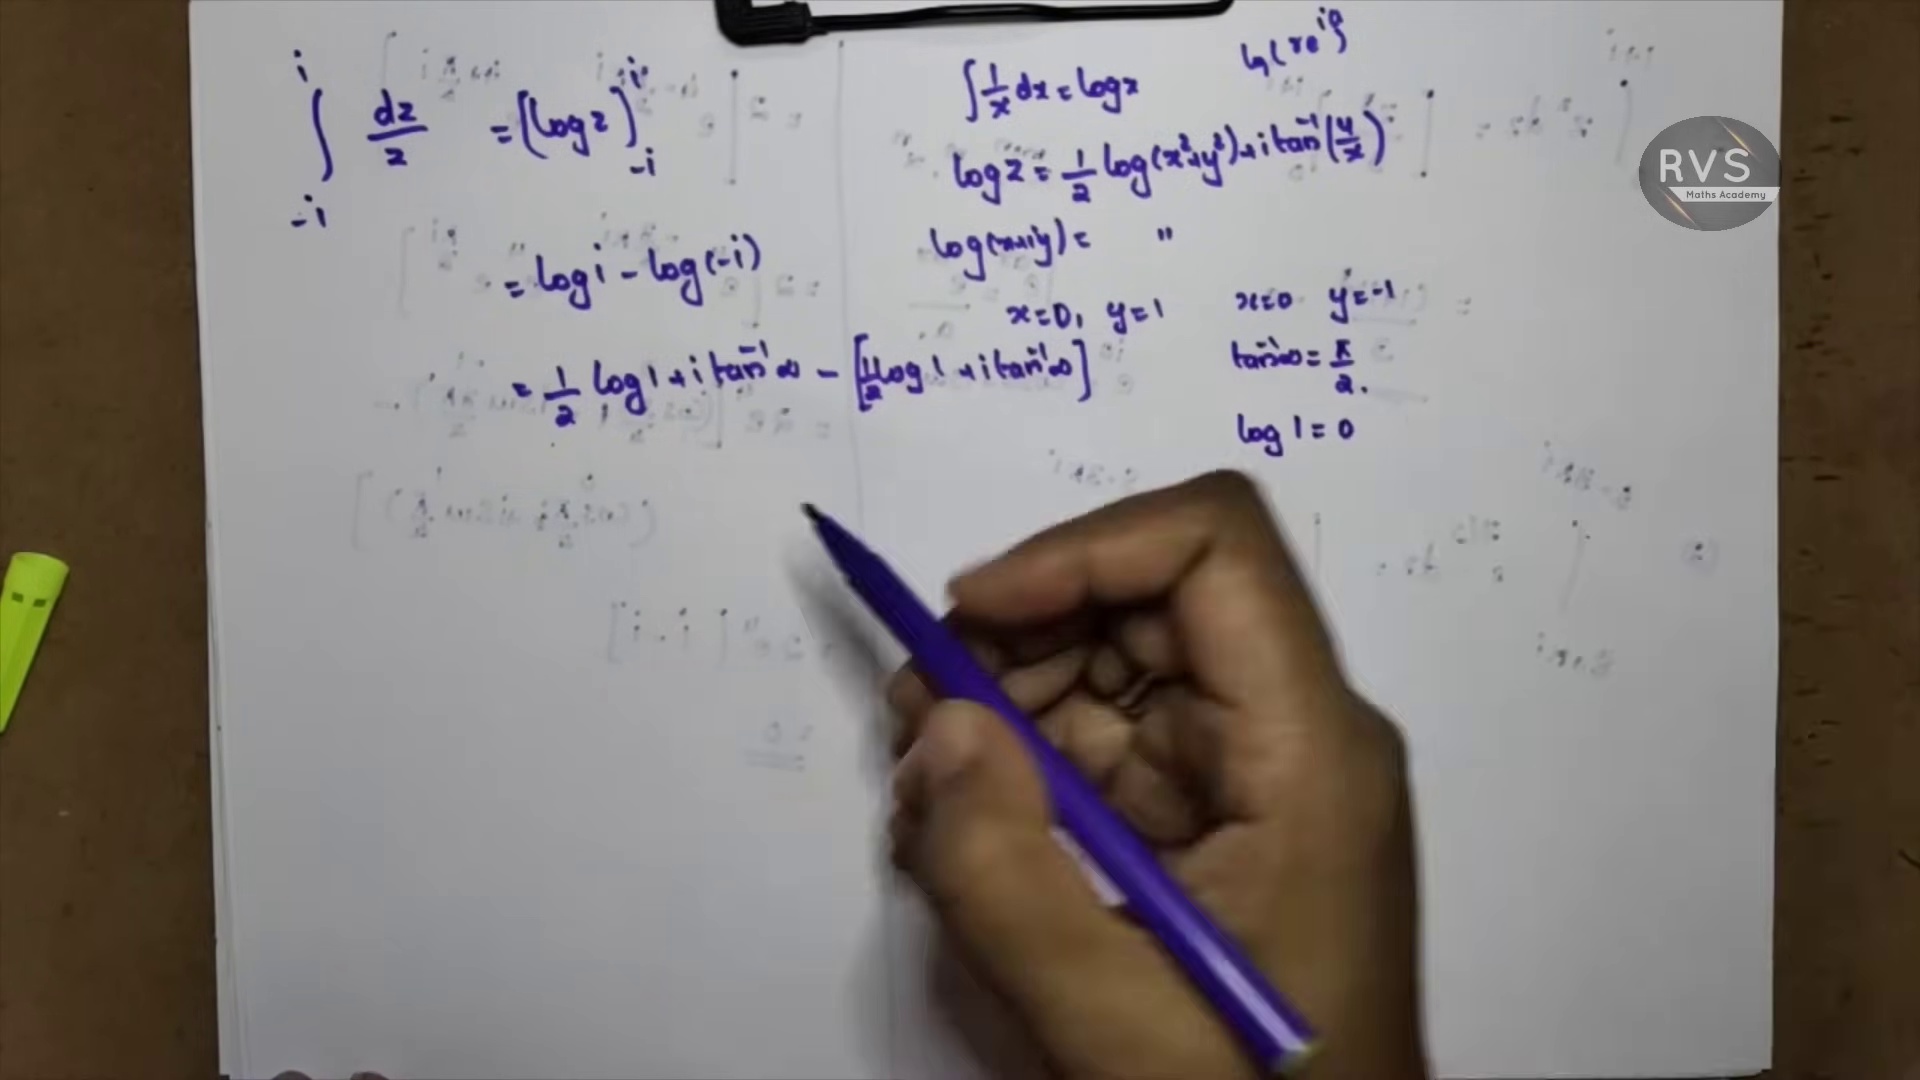 ∫_{-i}^{i} dz/z = [log z]_{-i}^{i}
= log i - log(-i)
= 1/2 log 1 + i tan⁻¹ ∞ - [1/2 log 1 + i tan⁻¹ ∞]
ln(re^{iθ})
∫ 1/x dx = log x
log z = 1/2 log(x²+y²) + i tan⁻¹(y/x)
log(x+iy) = "
x=0, y=1
x=0 y=-1
tan⁻¹ ∞ = π/2.
log 1 = 0
RVS
Maths Academy